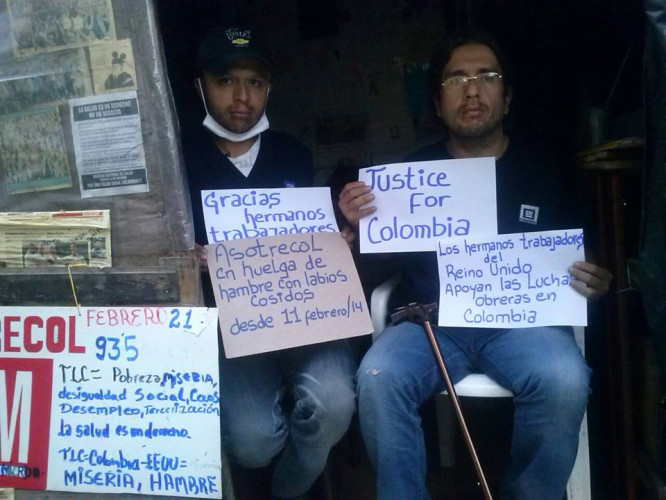 LA SALUD ES UN DERECHO
NO UN NEGOCIO
Gracias
hermanos
trabajadores
Asotrecol
en huelga de
hambre con labios
cosidos
desde 11 febrero/14
Justice
For
Colombia
Los hermanos trabajadores
del
Reino Unido
Apoyan las Luchas
obreras en
Colombia
GM
RECOL FEBRERO 21
935
TLC= Pobreza, MISERIA,
desigualdad Social,
Desempleo, Tercerización
la salud es un derecho.
TLC=Colombia-EEUU=
MISERIA, HAMBRE
M